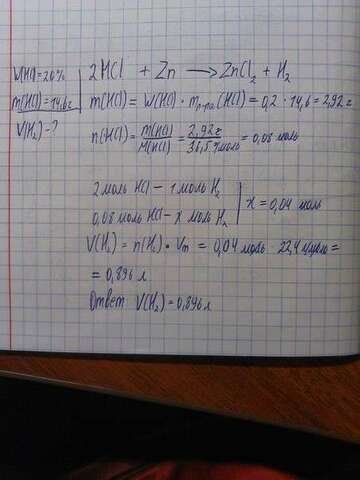 W(HCl)=20%
m(HCl)=14,6г
V(H₂)-?
2HCl + Zn → ZnCl₂ + H₂
m(HCl)= W(HCl)·mр-ра(HCl)=0,2·14,6=2,92г
n(HCl)= m(HCl)/M(HCl) = 2,92г/36,5г/моль = 0,08 моль
2 моль HCl - 1 моль H₂
0,08 моль HCl - x моль H₂ | x = 0,04 моль
V(H₂)= n(H₂)·Vm = 0,04 моль · 22,4 л/моль =
= 0,896 л
Ответ: V(H₂)=0,896 л